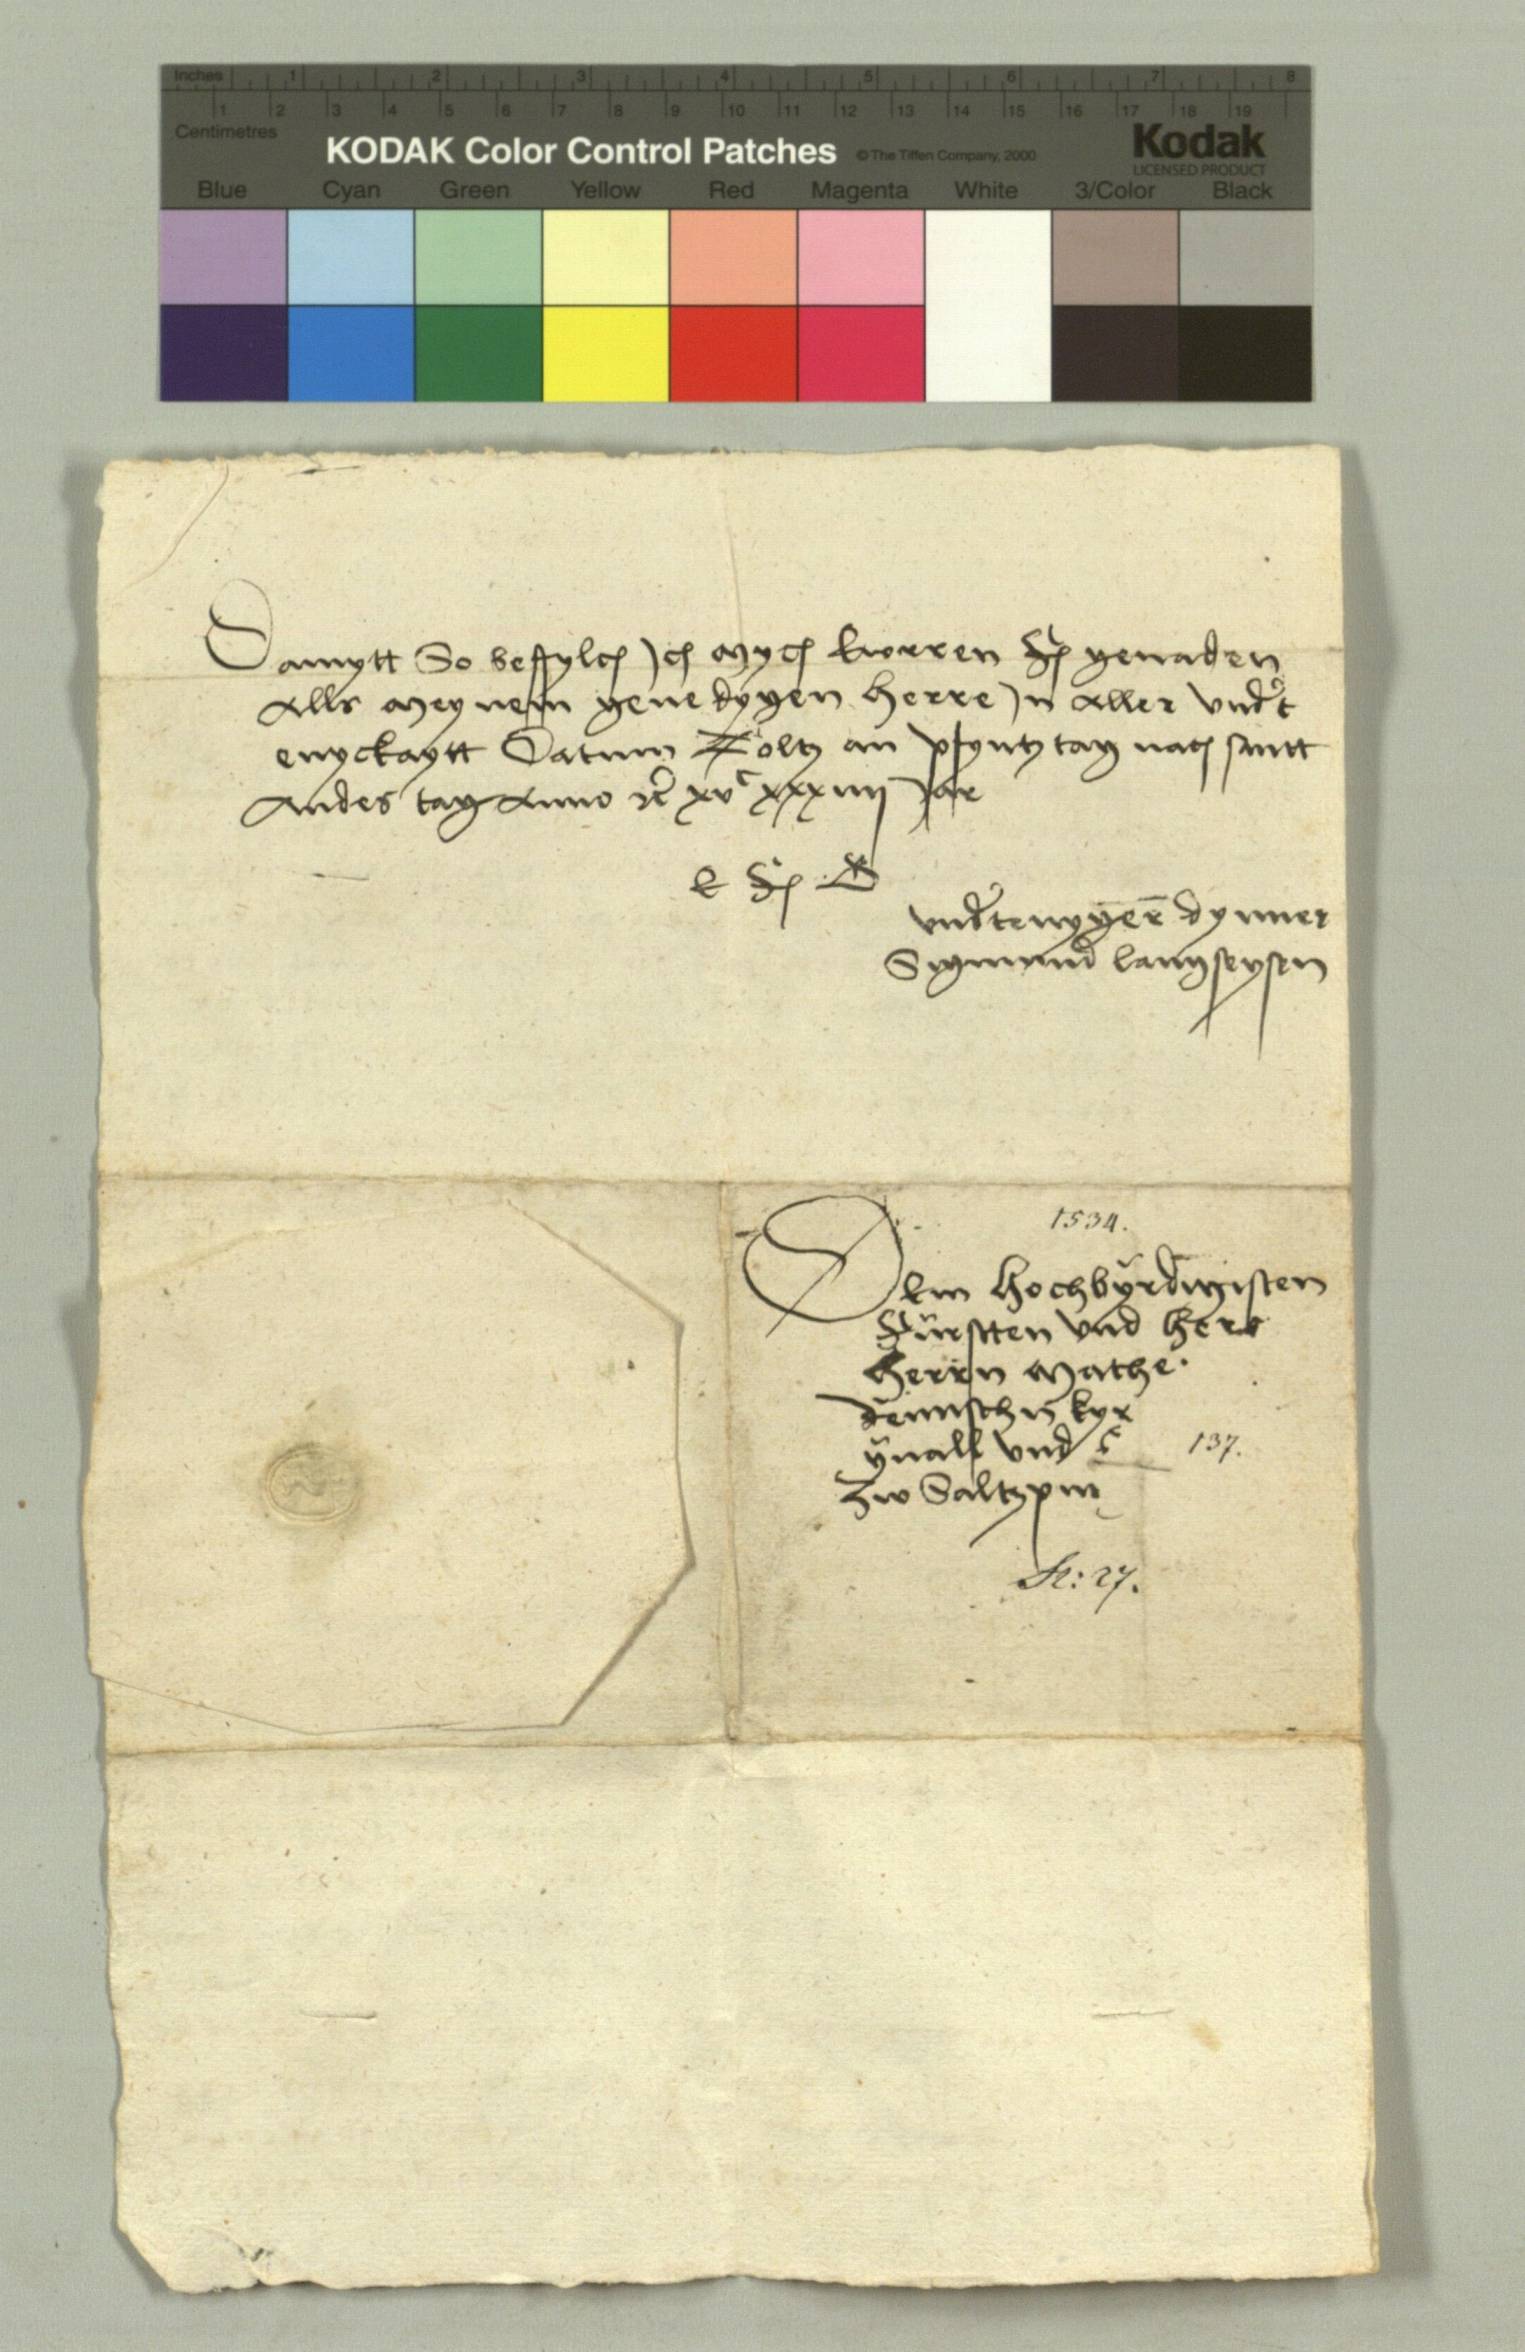 Inches 1 2 3 4 5 6 7 8
1 2 3 4 5 6 7 8 9 10 11 12 13 14 15 16 17 18 19
Centimetres
KODAK Color Control Patches © The Tiffen Company, 2000 Kodak
LICENSED PRODUCT
Blue Cyan Green Yellow Red Magenta White 3/Color Black
Damytt So beffylch Ich mych Ewrren F genaden
Alls meynem genedygen Herre In Aller Undt
enyckaytt Datum Töltz an pfyntztag nach santt
Andes tag Anno xvc xxxiiij Jar
E F G
undtenyger dynner
Sigmund langseysen
1534.
Dem Hochbyrdigisten
Fürstten Und Herr
Herrn Mathe
kyr
Und
137.
Zw Saltzpurg
St: 27.